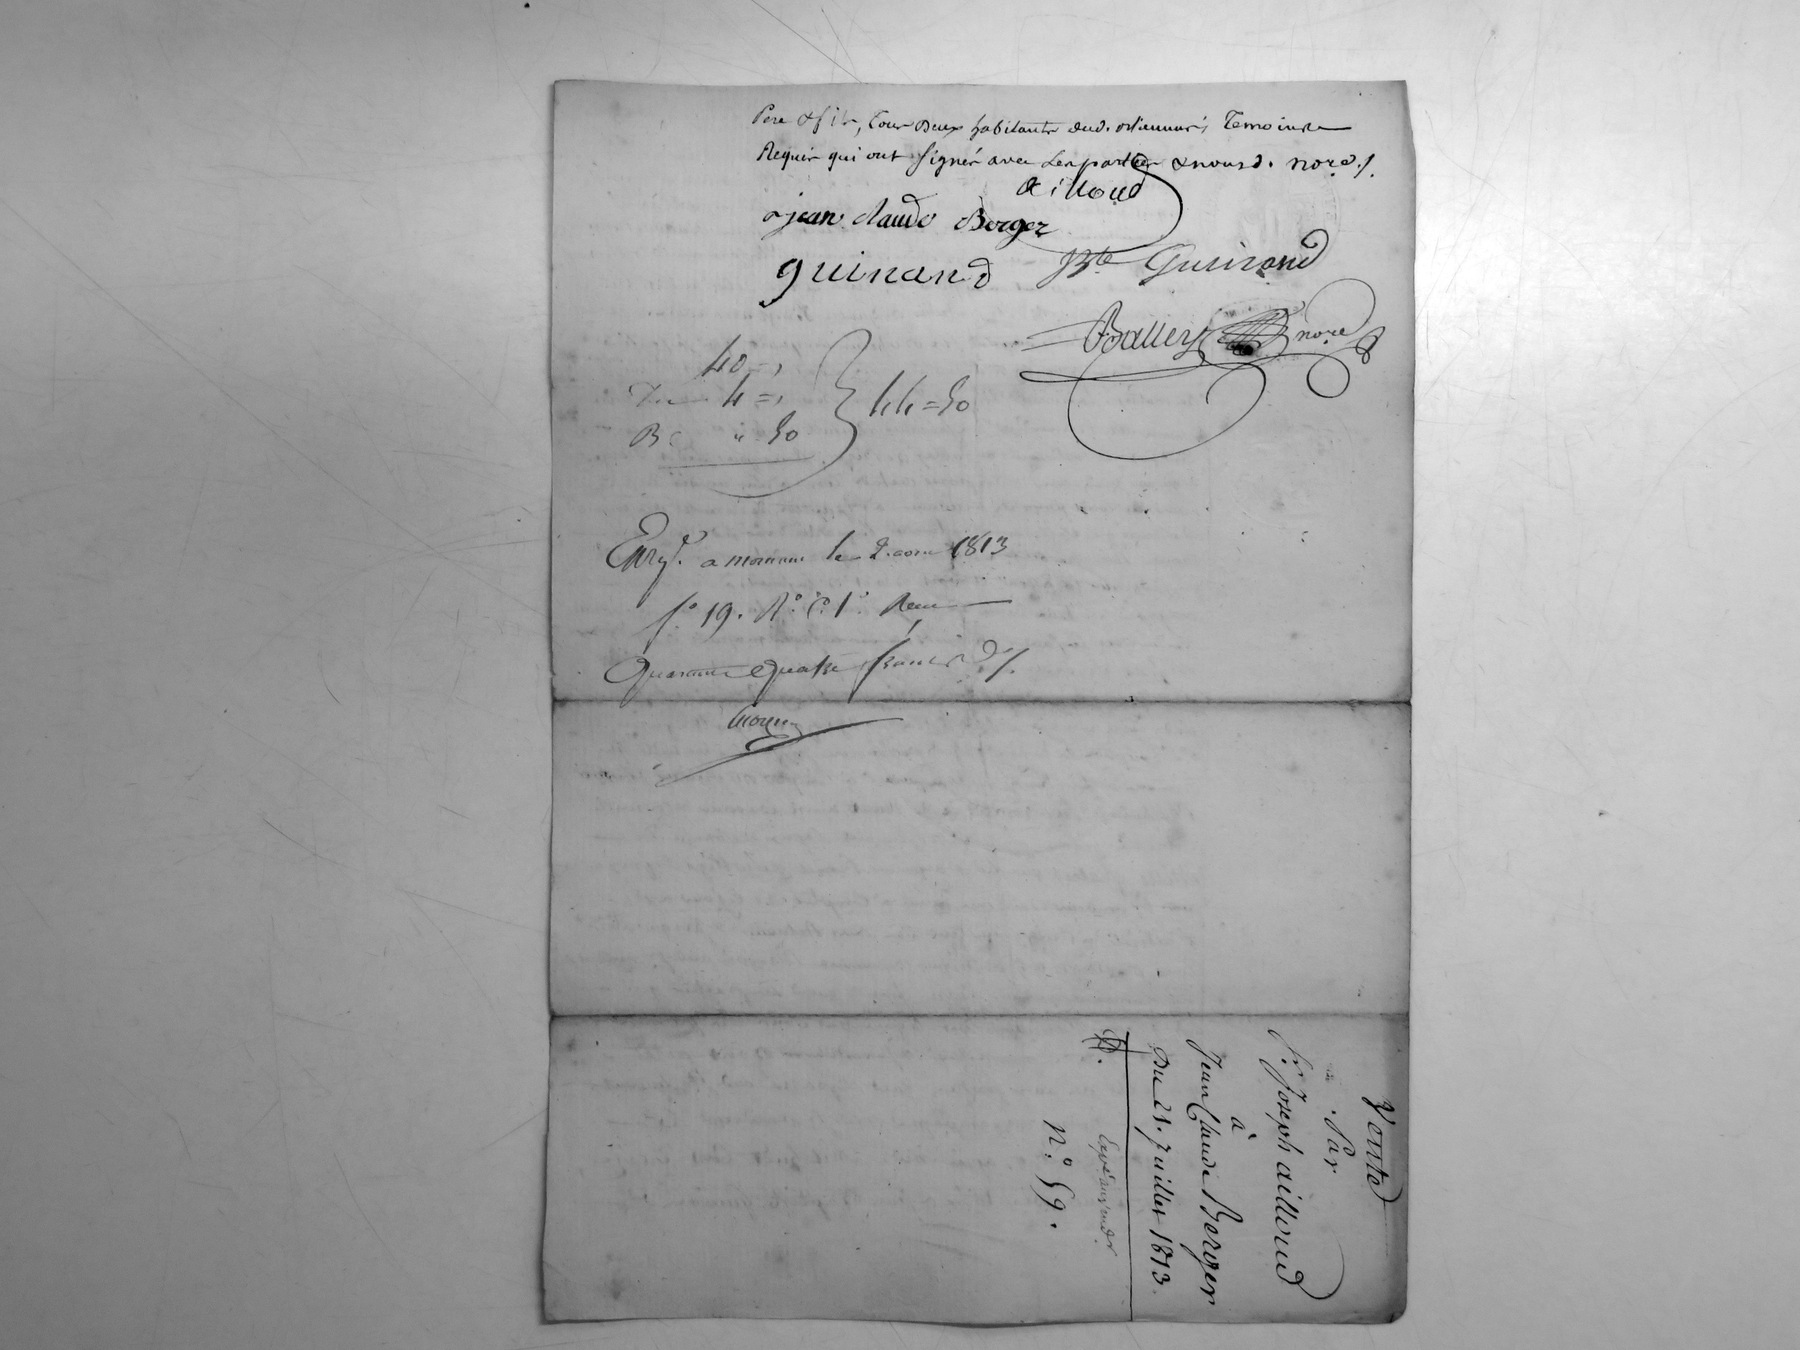 Pere & fils, tous deux habitants dud. Témoins
Requis qui ont signés avec les parties & nousd. nore./.
ailloud
jean claude Berger
guinand Bte Guinand
Balley nore
40 =,
4 =,
44 = 50
" 50
Enrg.é a mornant le 2. aout 1813
fo 19. Ro. C. 1o. Recu
Quarante quatre francs
Vente
Par
Sr. Joseph ailloud
à
Jean Claude Berger
Du 21. Juillet 1813.
n.o 59.